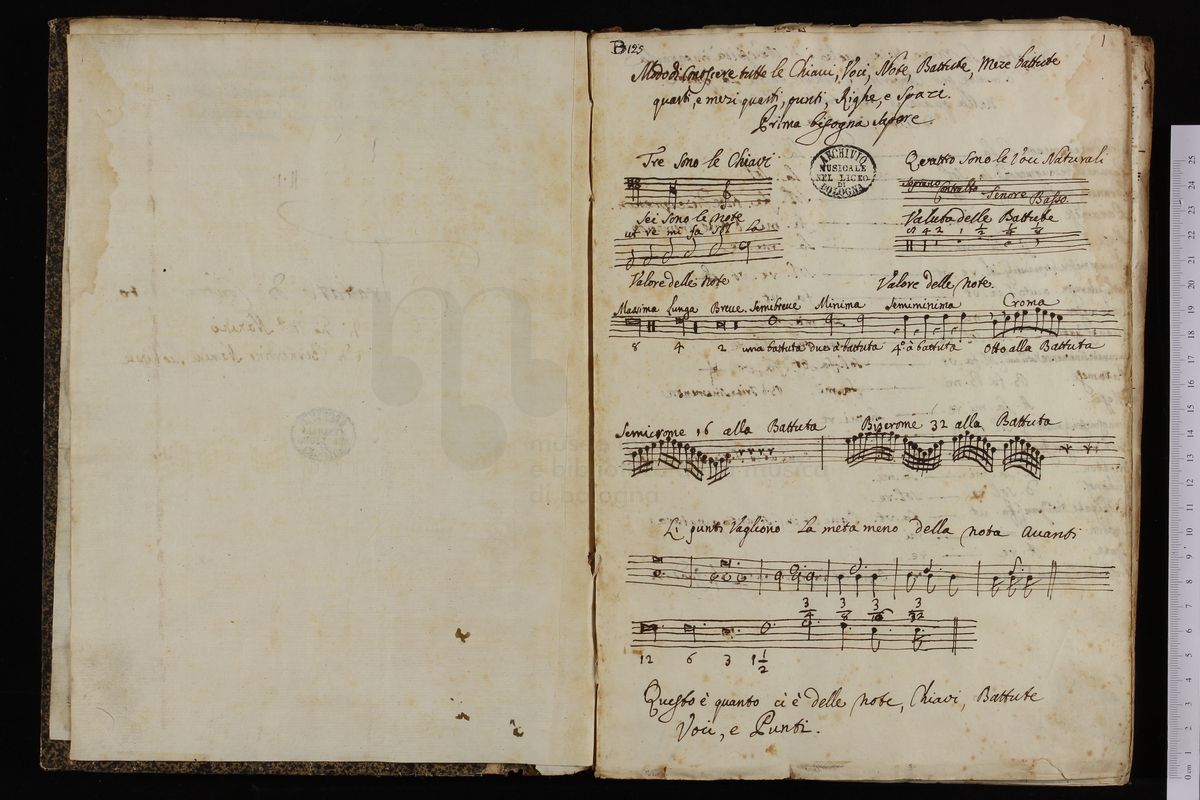 B 125
1
Modo di Conoscere tutte le Chiavi, Voci, Note, Battute, Meze battute
quarti, e mezi quarti, punti, Righe, e Spazi.
Prima bisogna sapere.
Tre sono le Chiavi
ARCHIVIO
MUSICALE
NEL LICEO
DI
BOLOGNA
Quattro sono le Voci Naturali
Soprano Contralto Tenore Basso
Sei sono le note
ut re mi fa sol la
Valuta delle Battute
8 4 2 1 1/2
Valore delle note
Valore delle note
Massima Lunga Breve Semibreve Minima Semiminima Croma
8 4 2 una battuta due à battuta 4º à battuta otto alla Battuta
Semicrome 16 alla Battuta Biscrome 32 alla Battuta
Li punti Vagliono la metà meno della nota avanti
3/4 3/8 3/16 3/32
12 6 3 1 1/2
Questo è quanto ci è delle note, Chiavi, Battute
Voci, e Punti.
museo
e biblioteca
di bologna